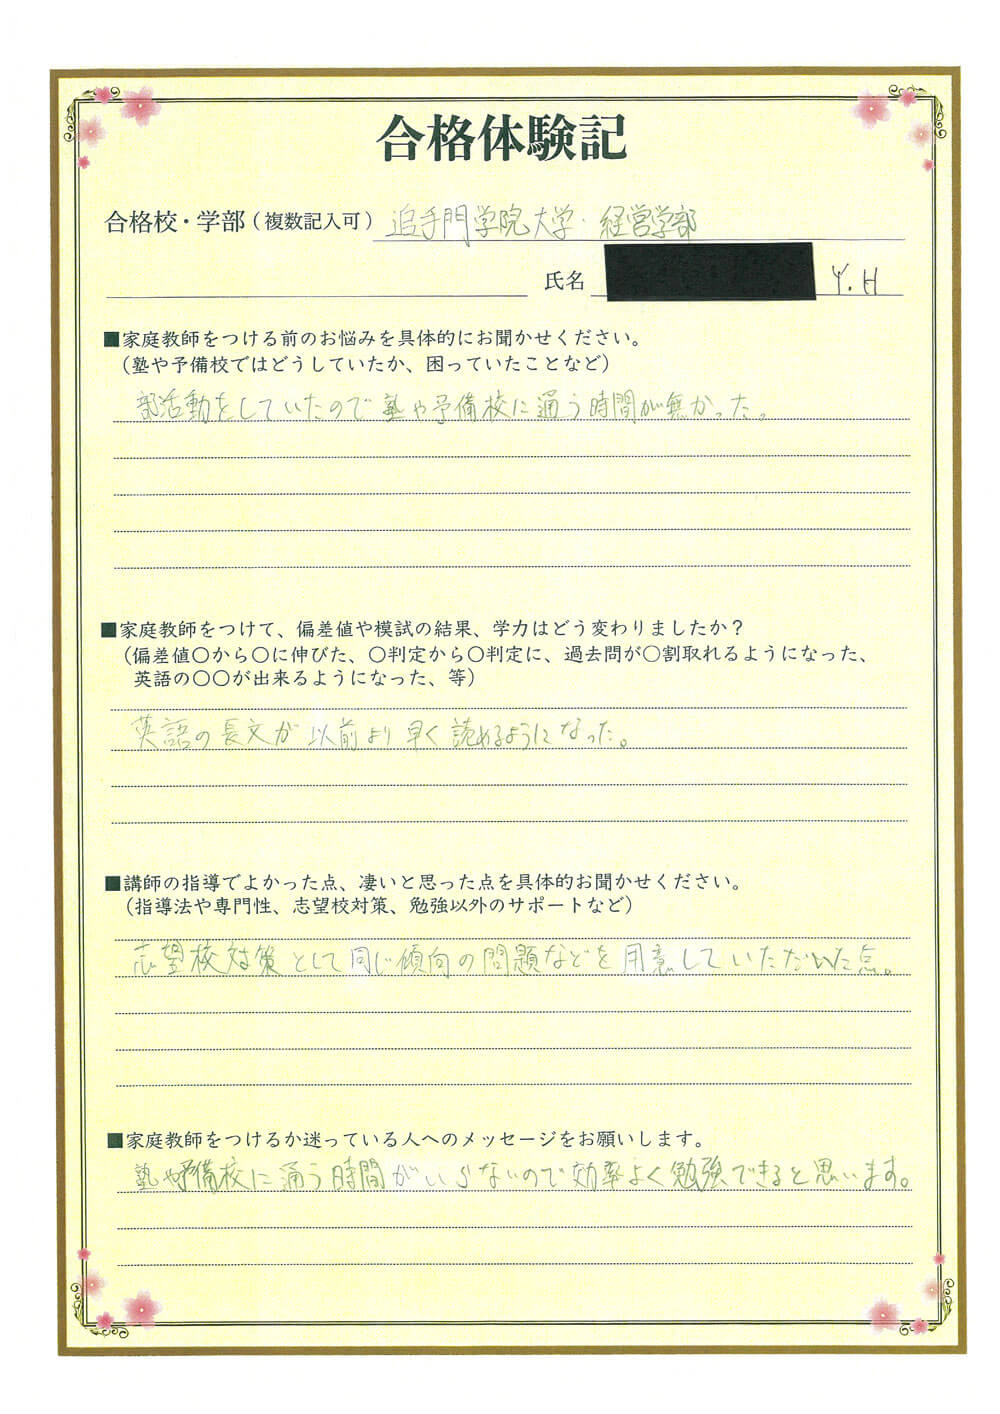 合格体験記
合格校・学部(複数記入可) 追手門学院大学・経営学部
氏名 Y.H
■家庭教師をつける前のお悩みを具体的にお聞かせください。
(塾や予備校ではどうしていたか、困っていたことなど)
部活動をしていたので塾や予備校に通う時間が無かった。
■家庭教師をつけて、偏差値や模試の結果、学力はどう変わりましたか？
(偏差値〇から〇に伸びた、〇判定から〇判定に、過去問が〇割取れるようになった、
英語の〇〇が出来るようになった、等)
英語の長文が以前より早く読めるようになった。
■講師の指導でよかった点、凄いと思った点を具体的お聞かせください。
(指導法や専門性、志望校対策、勉強以外のサポートなど)
志望校対策として同じ傾向の問題などを用意していただいた点。
■家庭教師をつけるか迷っている人へのメッセージをお願いします。
塾や予備校に通う時間がいらないので効率よく勉強できると思います。